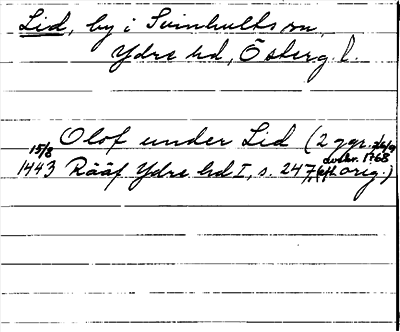 Lid, by i Svinhults sn,
Ydre hd, Österg. l.
Olof under Lid (2 ggr.
avskr. 1768
15/8 1443 Rääf Ydre hd I, s. 247, (eft. orig.)